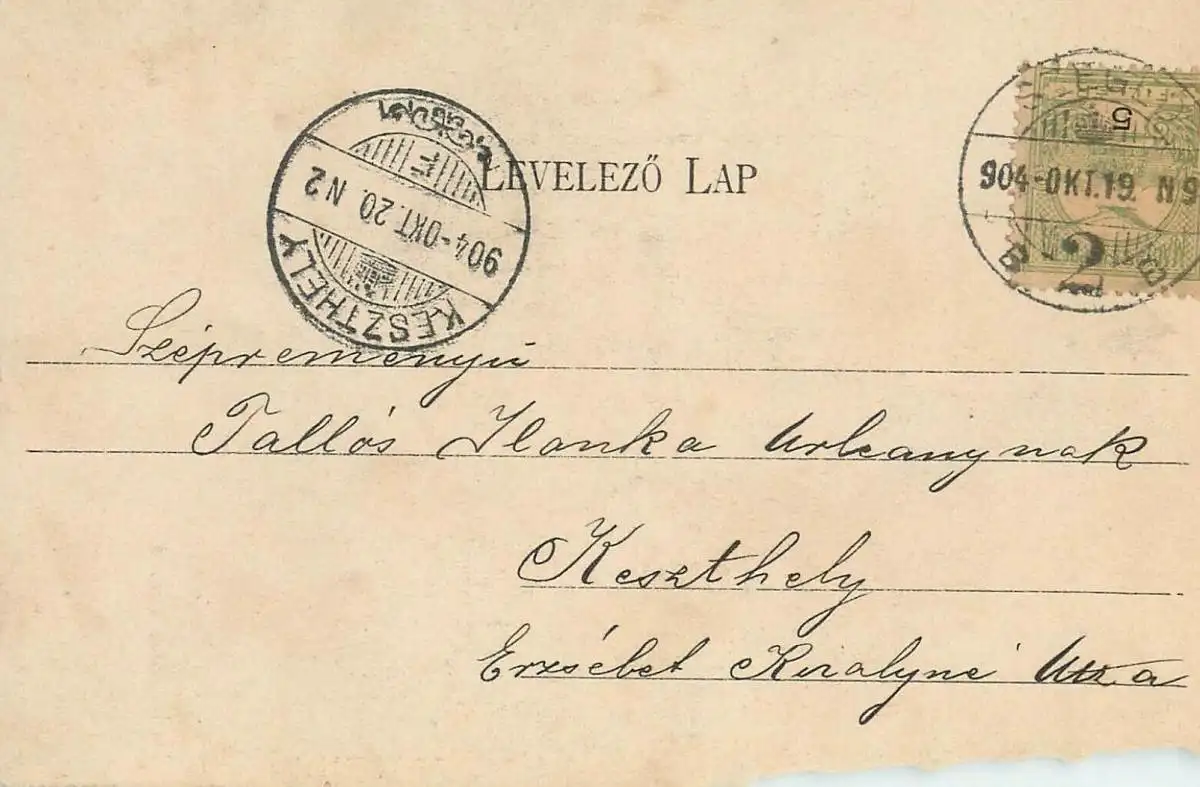 LEVELEZŐ LAP
KESZTHELY
904-OKT.20. N 2
5
904-OKT.19. N 9
B 2 B
Szépreményü
Tallós Ilonka Urleanynak
Keszthely
Erzsébet Királyné Utza